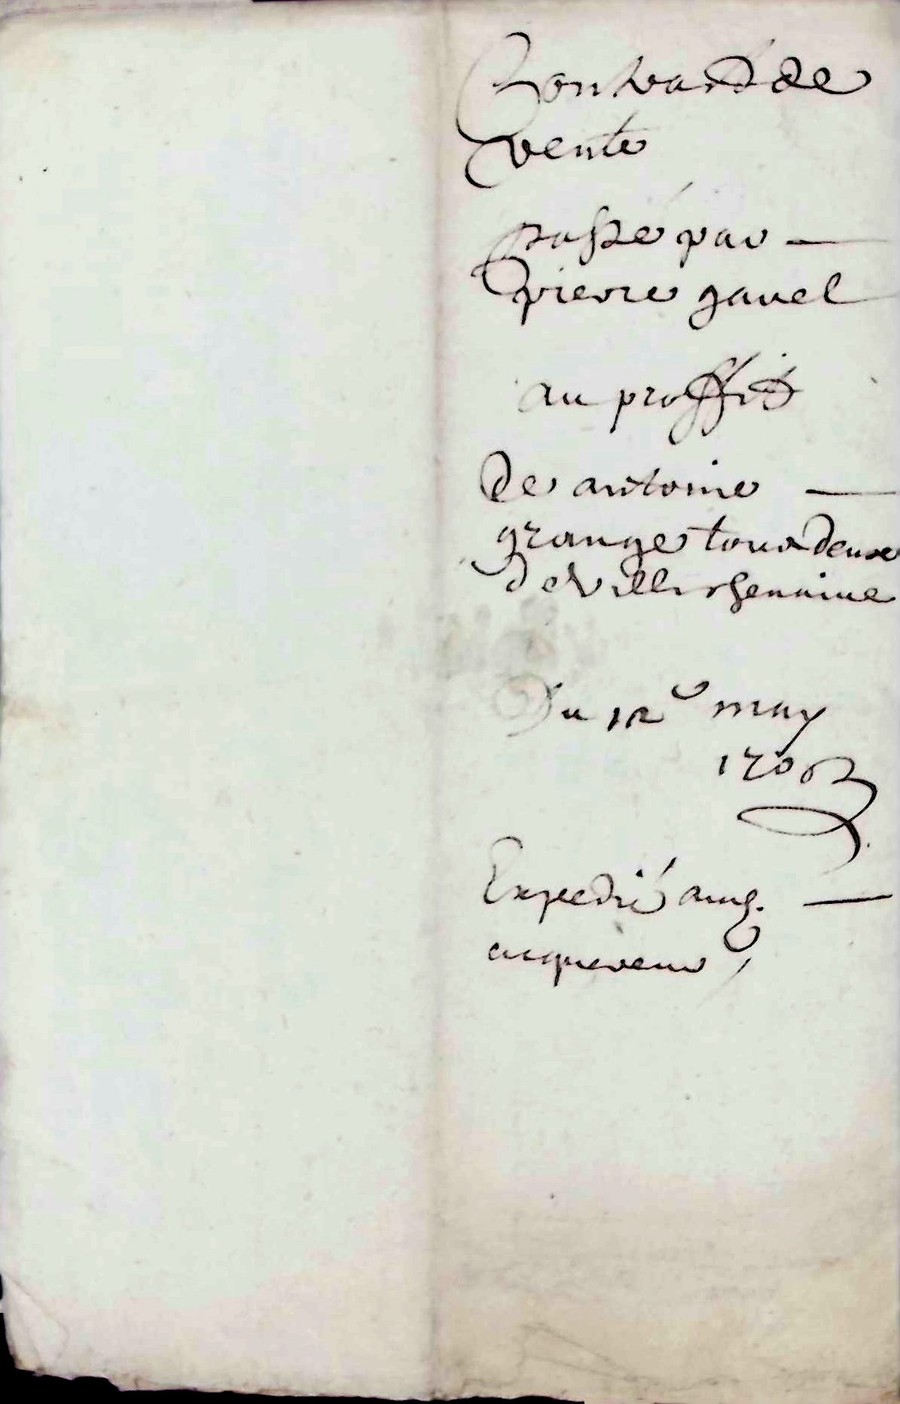 Contract de
vente
passé par —
pierre gavel
au proffit
de antoine —
grange tous deux
de Villechenaine
Du 12e may
1706
Expedié aud. —
acquereur